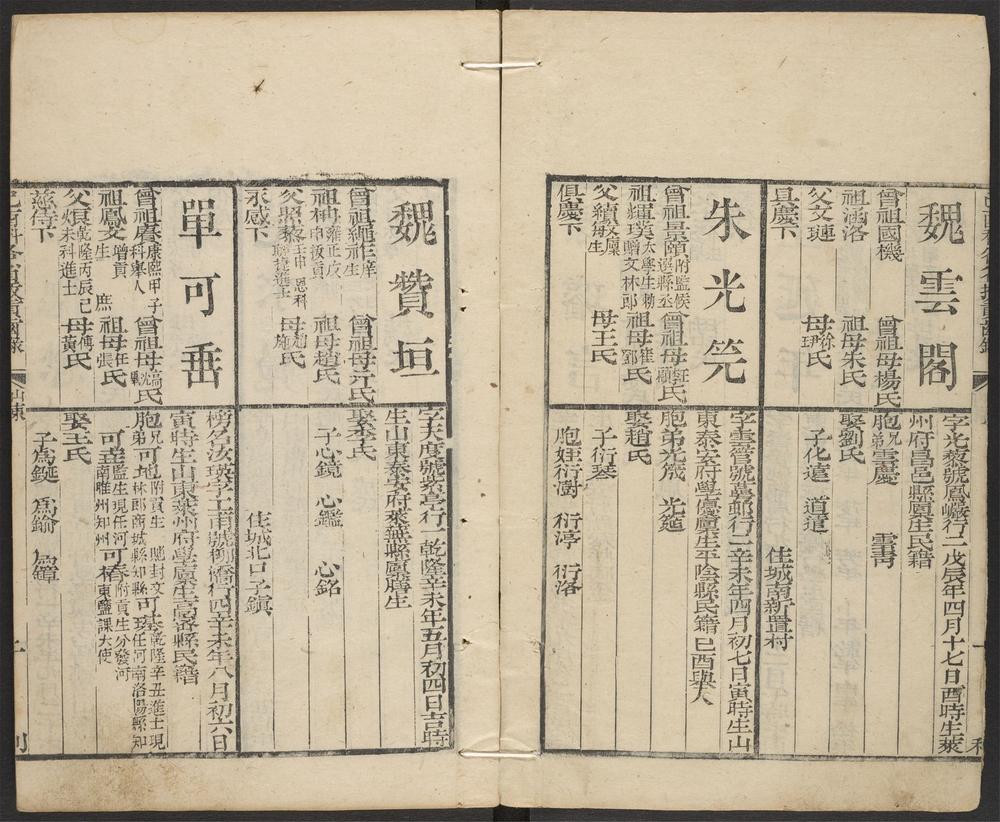 魏雲閣
曾祖國機 曾祖母楊氏
祖涵洛 祖母朱氏
父文璉 母徐尹氏
具慶下
字光 號鳳巘行二戊辰年四月十七日酉時生萊
州府昌邑縣廩生民籍
胞兄弟雲慶 雲青
娶劉氏
子化遠 道遠
住城南新置村
朱光筦
曾祖景頤 附監候選縣丞 曾祖母汪顧氏
祖輝璞 太學生勅贈文林郎 祖母崔鄧氏
父續孜 廩生 母王氏
俱慶下
字雲 號 行二辛未年四月初七日寅時生山
東泰安府學廩生平陰縣民籍己酉舉人
胞弟光箴 光筵
娶趙氏
子衍琴
胞姪衍澍 衍渟 衍洛
魏贊垣
曾祖繩 庠生 曾祖母亓氏
祖珅 雍正戊申拔貢 祖母趙氏
父照藜 壬申恩科聯捷進士 母趙施氏
永感下
字天度號紫亭行一乾隆辛未年五月初四日吉時
生山東泰安府萊蕪縣廩膳生
娶李氏
子心鏡 心鑑 心銘
住城北口子鎮
單可垂
曾祖 康熙甲子科舉人 曾祖母 氏
祖鳳文 增貢生 祖母任張氏
父烺 乾隆丙辰己未科進士 母傅黃氏
慈侍下
榜名汝瑛字工南號柳橋行四辛未年八月初六日
寅時生山東萊州府學廩生高密縣民籍
胞兄弟可地 附貢生 貤封文林郎商城縣知縣 可基 乾隆辛丑進士現任河南洛陽縣知
可垚 監生現任河南睢州知州 可椿 附貢生分發河東鹽課大使
娶王氏
子為鋋 為鍮